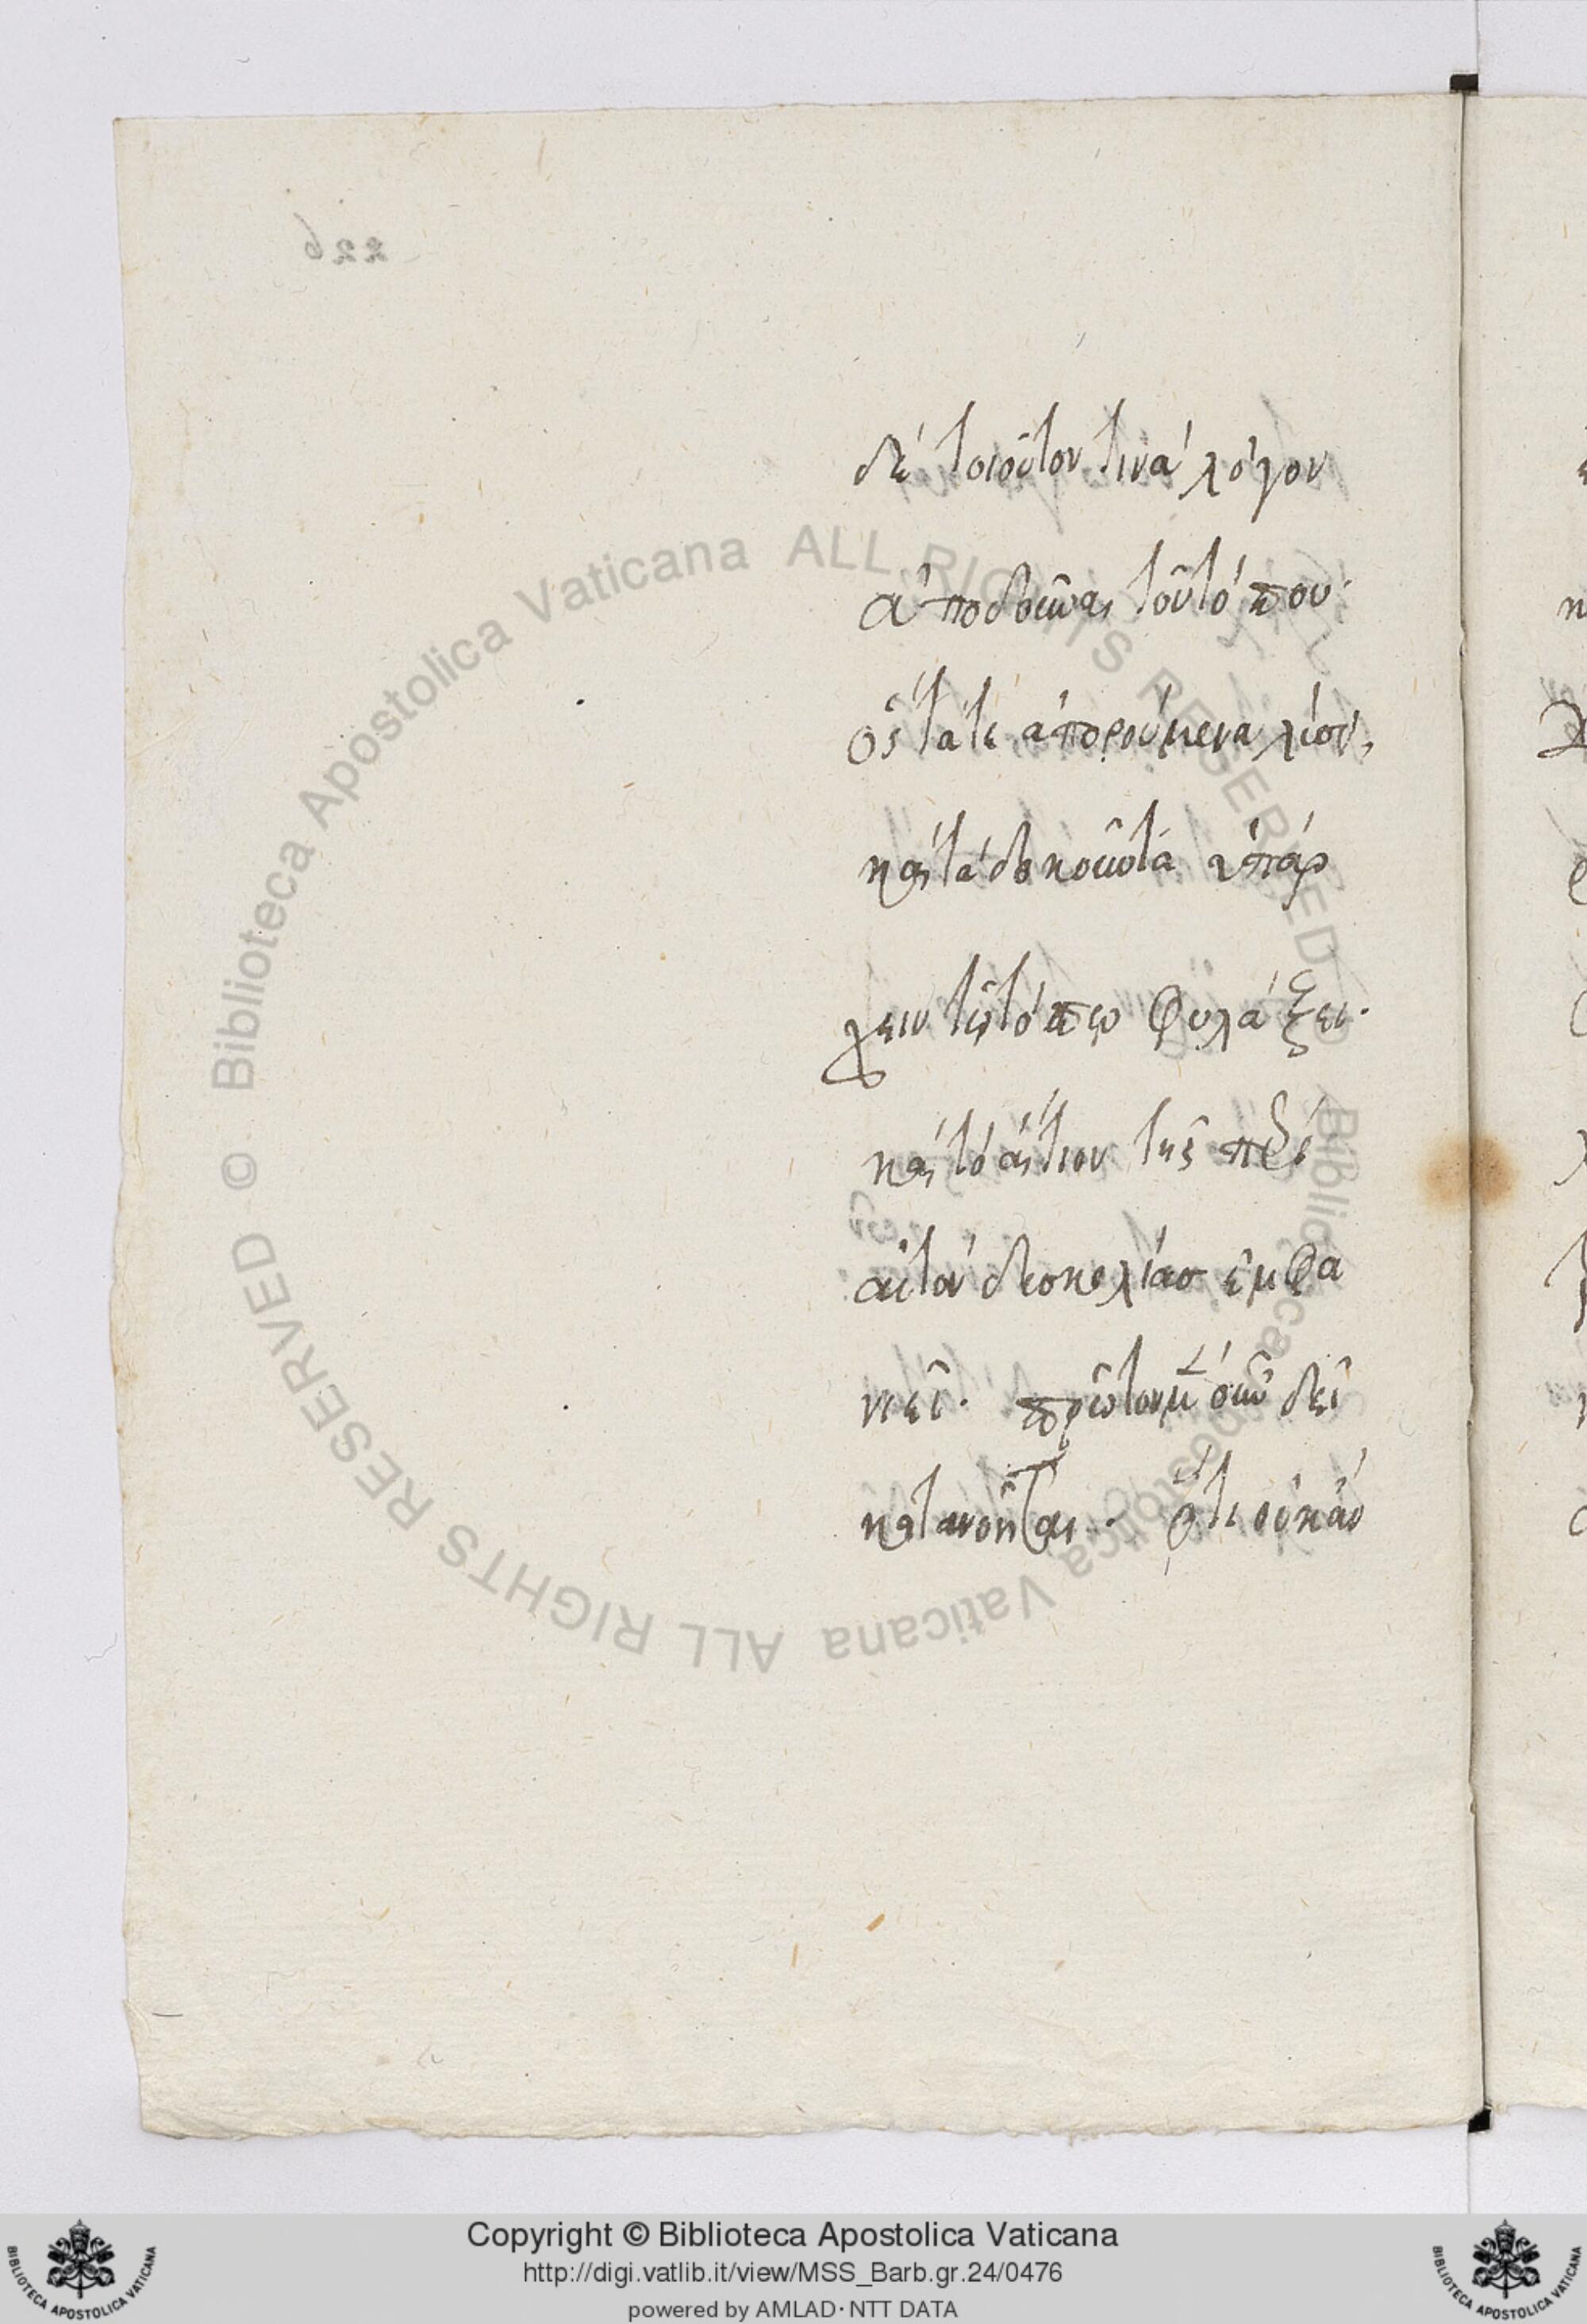 226
δὲ τοιοῦτον τινὰ λόγον
ἀποδοῦναι τοῦ τόπου·
ὃς τά τε ἀπορούμενα λύσει,
καὶ τὰ δοκοῦντα ὑπάρ
χειν τῷ τόπῳ φυλάξει·
καὶ τὸ αἴτιον τῆς περὶ
αὐτὰ δυσκολίας ἐμφα
νιεῖ· πρῶτον μὲν οὖν δεῖ
κατανοῆσαι· ὅτι οὐκ ἂν
Biblioteca Apostolica Vaticana ALL RIGHTS RESERVED ©
Biblioteca Apostolica Vaticana ALL RIGHTS RESERVED ©
Copyright © Biblioteca Apostolica Vaticana
http://digi.vatlib.it/view/MSS_Barb.gr.24/0476
powered by AMLAD · NTT DATA
BIBLIOTECA APOSTOLICA VATICANA
BIBLIOTECA APOSTOLICA VATICANA